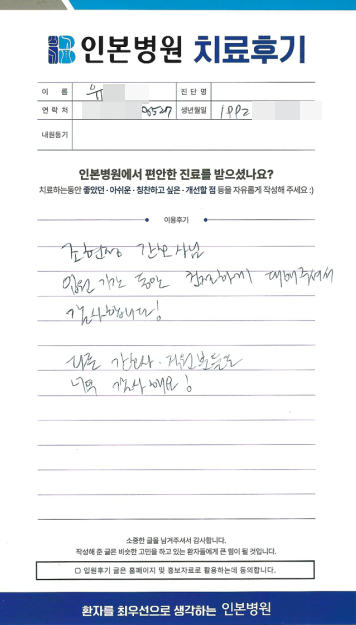 인본병원 치료후기
이 름 유 진 단 명
연 락 처 생년월일 1992
내원동기
인본병원에서 편안한 진료를 받으셨나요?
치료하는동안 좋았던 · 아쉬운 · 칭찬하고 싶은 · 개선할 점 등을 자유롭게 작성해 주세요 :)
이용후기
조현정 간호사님
입원 기간 동안 친절하게 대해주셔서
감사합니다!
다른 간호사 · 직원분들도
너무 감사해요!
소중한 글을 남겨주셔서 감사합니다.
작성해 준 글은 비슷한 고민을 하고 있는 환자들에게 큰 힘이 될 것입니다.
▢ 입원후기 글은 홈페이지 및 홍보자료로 활용하는데 동의합니다.
환자를 최우선으로 생각하는 인본병원